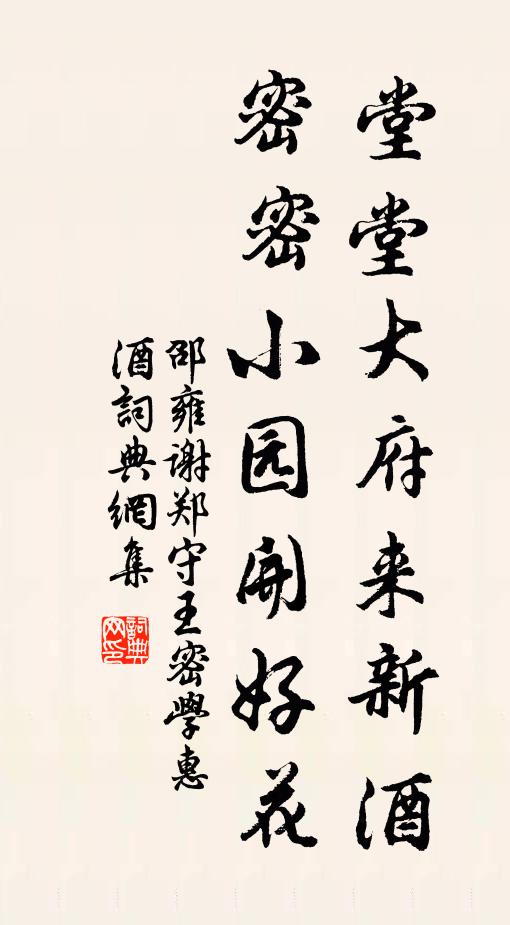 堂堂大府来新酒
密密小园開好花
邵雍谢郑守王密學惠
酒詞典網集
詞典網印